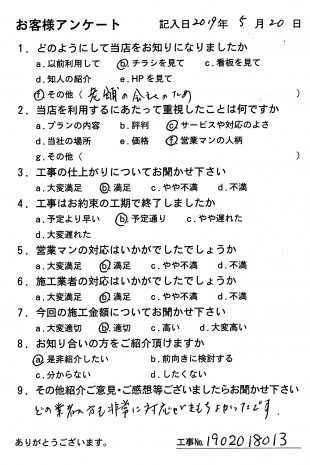 お客様アンケート 記入日2019年 5月20日
1．どのようにして当店をお知りになりましたか
a.以前利用して ⓑチラシを見て c.看板を見て
d.知人の紹介 e.HPを見て
ⓕその他（老舗の会社のため）
2．当店を利用するにあたって重視したことは何ですか
a.プランの内容 b.評判 ⓒサービスや対応のよさ
d.当社の場所 e.価格 ⓕ営業マンの人柄
g.その他（ ）
3．工事の仕上がりについてお聞かせ下さい
a.大変満足 ⓑ満足 c.やや不満 d.不満
4．工事はお約束の工期で終了しましたか
a.予定より早い ⓑ予定通り c.やや遅れた
d.大変遅れた
5．営業マンの対応はいかがでしたでしょうか
a.大変満足 ⓑ満足 c.やや不満 d.不満
6．施工業者の対応はいかがでしたでしょうか
a.大変満足 ⓑ満足 c.やや不満 d.不満
7．今回の施工金額についてお聞かせ下さい
a.大変適切 ⓑ適切 c.高い d.大変高い
8．お知り合いの方をご紹介頂けますか
ⓐ是非紹介したい b.前向きに検討する
c.分からない d.したくない
9．その他紹介ご意見・ご感想等ございましたらお聞かせ下さい
どの業者の方も非常に対応がきもちよかったです
ありがとうございます。 工事No.1902018013